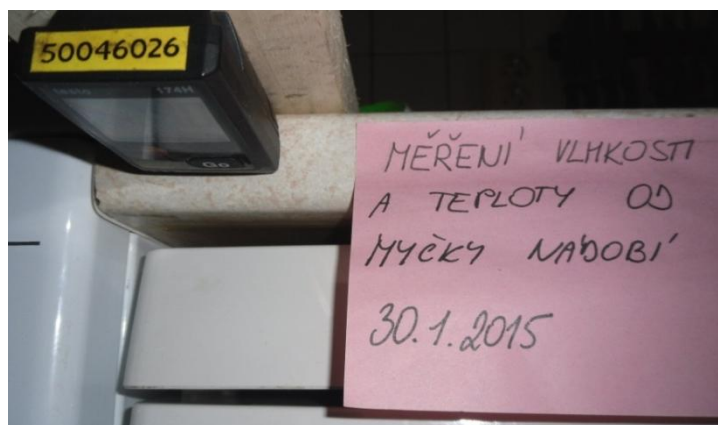 50046026
testo 174H
Go
MĚŘENÍ VLHKOSTI
A TEPLOTY OD
MYČKY NÁDOBÍ
30.1.2015